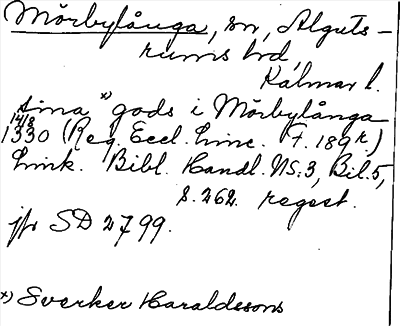 Mörbylånga, sn, Alguts-
rums hd,
Kalmar l.
sina x) gods i Mörbylånga
14/8
1330 (Reg. Eccl. Linc. f. 189 r.)
Link. Bibl. Handl. NS: 3, Bil. 5,
s. 262. regest.
jfr SD 2799.
x) Sverker Haraldssons